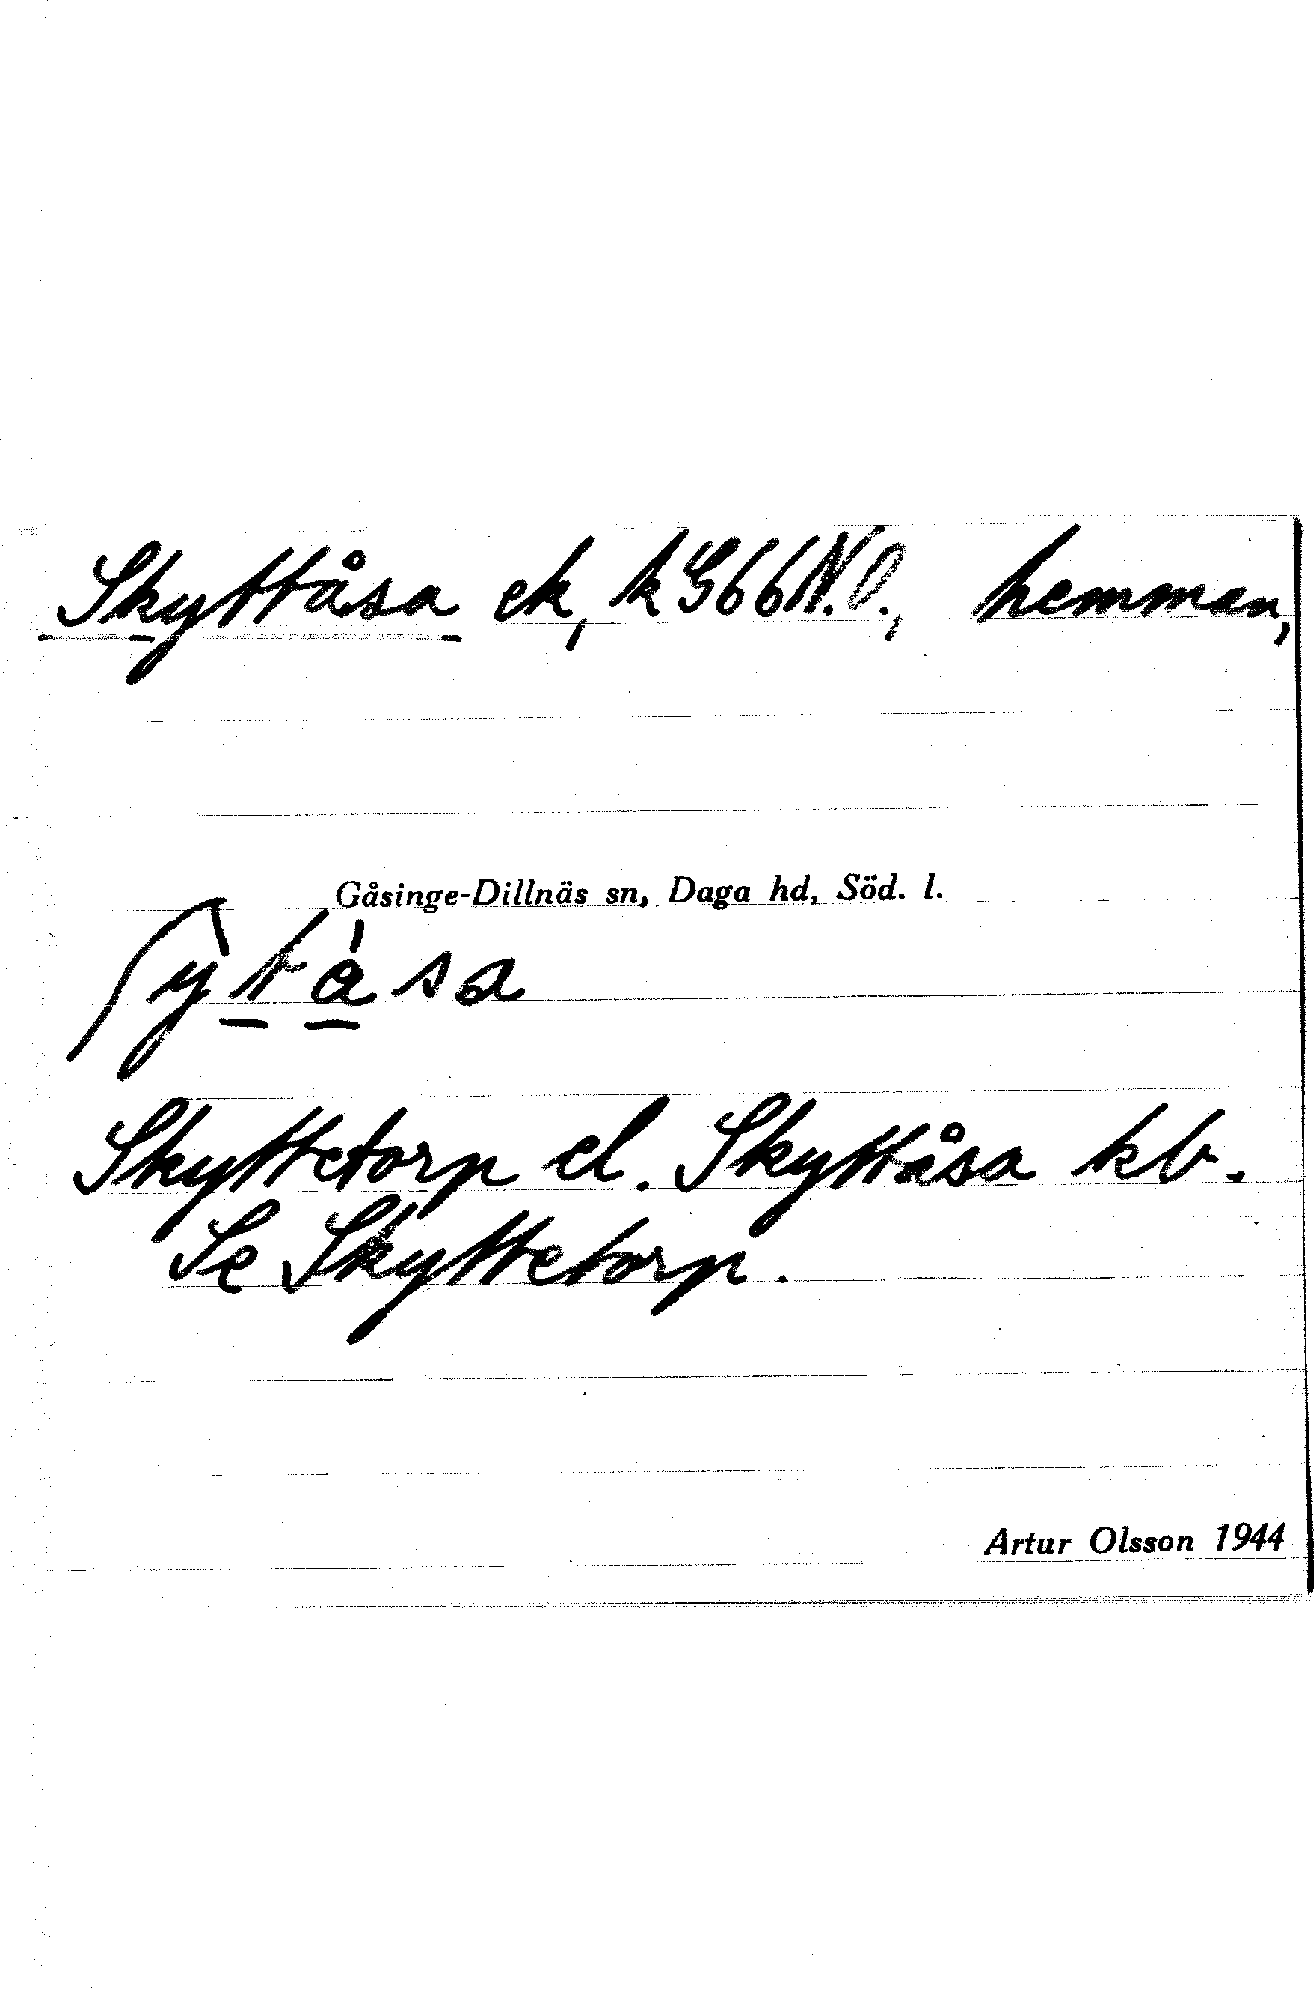 Skyttåsa ek, k G66N.O., hemman,
Gåsinge-Dillnäs sn, Daga hd, Söd. l.
ʃỳtàsa
Skyttetorp el. Skyttåsa kb.
Se Skyttetorp.
Artur Olsson 1944